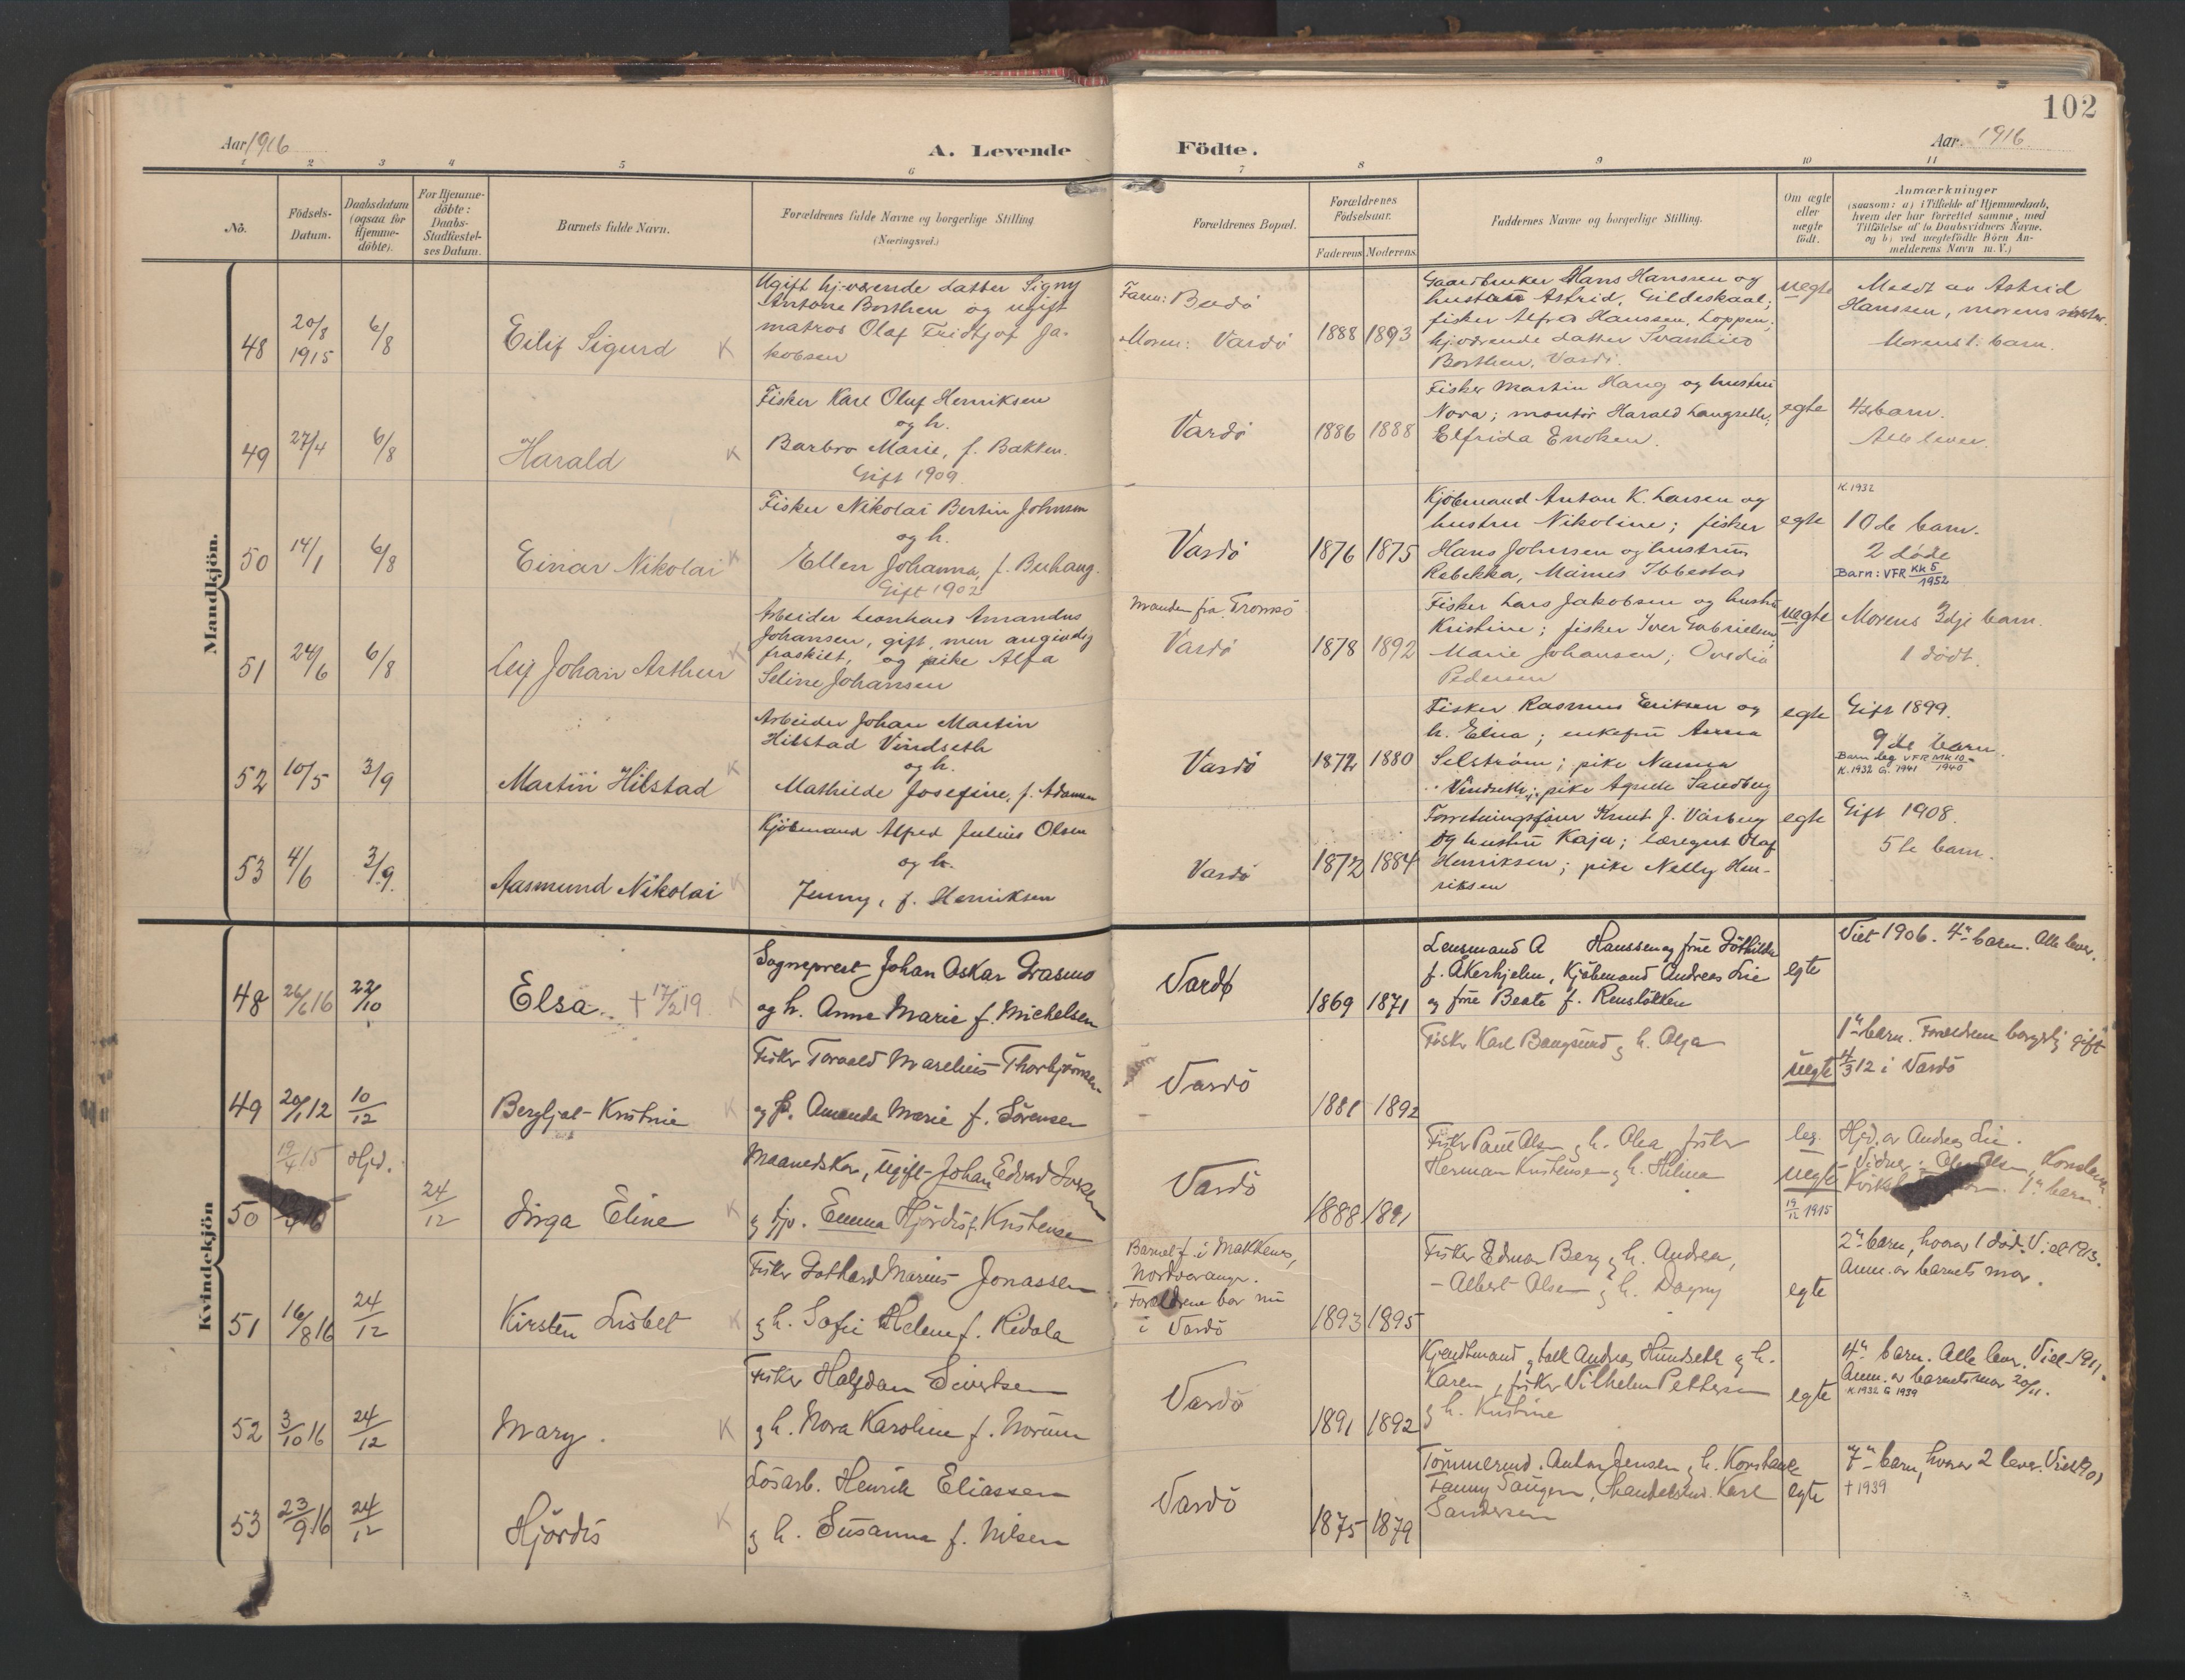 102
Aar 1916
A. Levende
Födte.
Aar. 1916
1 2 3 4 5 6 7 8 9 10 11
No.
Födsels-
Datum.
Daabsdatum
(ogsaa for
Hjemme-
döbte).
For Hjemme-
döbte:
Daabs-
Stadfæstel-
ses Datum.
Barnets fulde Navn.
Forældrenes fulde Navne og borgerlige Stilling
(Næringsvei.)
Forældrenes Bopæl.
Forældrenes
Födselsaar.
Faderens Moderens
Faddernes Navne og borgerlig Stilling.
Om ægte
eller
uægte
födt.
Anmærkninger
(saasom: a) i Tilfælde af Hjemmedaab,
hvem der har forrettet samme, med
Tilföielse af to Daabsvidners Navne.
og b) ved uægtefödte Börn An-
melderens Navn m. V.)
Mandkjön.
48
20/8
1915
6/8
Eilif Sigurd K
Ugift hj.værende datter Signy
Antone Borthen og ugift
matros Olaf Fridtjof Ja-
kobsen
Faren: Bodö
Moren: Vardö
1888 1893
Gaardbruker Hans Hanssen og
hustru Astrid, Gildeskaal;
fisker Alfred Hanssen, Loppen;
hj.værende datter
Borthen, Vardö.
uegte
Meldt av Astrid
Hanssen, morens søster.
Morens 1. barn.
49
27/4
6/8
Harald K
Fisker Karl Oluf Henriksen
og h.
Barbro Marie, f. Bakken.
Gift 1909.
Vardö
1886 1888
Fisker Martin Haug og hustru
Nora; montör Harald Langseth;
Elfrida Enoksen.
egte
4de barn.
Alle lever.
50
14/1
6/8
Einar Nikolai K
Fisker Nikolai Bertin Johnsen
og h.
Ellen Johanna, f. Buhaug.
Gift 1902
Vardö
1876 1875
Kjöbmand Anton K. Larsen og
hustru Nikoline; fisker
Hans Johnsen og hustru
Rebekka, Maines Ibbestad
egte
K. 1932
10de barn.
2 döde
Barn: VFR KK 5
1952
51
24/6
6/8
Leif Johan Arthur K
Arbeider Leonhard Amandus
Johansen, gift, men angivelig
fraskilt, og pike Alfa
Seline Johansen
Manden fra Tromsö
Vardö
1878 1892
Fisker Lars Jakobsen og hustru
Kristine; fisker Iver Gabrielsen;
Marie Johansen; Ovedia
Pedersen
uegte
Morens 3dje barn.
1 dödt.
52
10/5
3/9
Martin Hilstad K
Arbeider Johan Martin
Hilstad Vindseth
og h.
Mathilde Josefine, f. Adamsen
Vardö
1872 1880
Fisker Rasmus Eriksen og
h. Elna; enkefru Anna
Selström; pike Nanna
Vindseth; pike Agnete Sandberg
egte
Gift 1899.
9de barn.
Barn leg VFR MK 10-
K. 1932 G. 1941 1940
53
4/6
3/9.
Aasmund Nikolai K
Kjöbmand Alfred Julius Olsen
og h.
Jenny, f. Henriksen
Vardö
1872 1884
Forretningsförer Knut J. Varberg
og hustru Kaja; læregut Olaf
Henriksen; pike Nelly Hen-
riksen
egte
Gift 1908.
5te barn.
Kvindekjön
48
26/6 16
22/10
Elsa. † 17/2 19. K
Sogneprest Johan Oskar Grasmo
og h. Anne Marie f. Michelsen
Vardö
1869 1871
Lensmand A Hanssen og frue Döthilda
f. Åkerhjelm, Kjöbmand Andreas Lie
og frue Beate f. Renslökken
egte
Viet 1906. 4de barn. Alle lever.
49
20/1 12
10/12
Bergljot Kristine K
Fisker Torvald Marelius Thorbjörnsen
og h. Amanda Marie f. Sörensen
Vardö
1881 1892
Fisker Karl Bangsund og h. Olga
uegte
1ste barn. Forældrene borgerlig gift
4/3 12 i Vardö
50
19/4 15 Hjd.
24/12
Inga Eline K
Maanedskar, ugift Johan Edvard
og tjp. Emma Hjördis f. Kristensen
Vardö
1888 1891
Fisker Paul Olsen og h. Olea, fisker
Herman Kristensen og h. Hilma
leg.
uegte
19/12 1915
Hjd. av Andrea Lie.
Vidner: Olsen, Konstanse
1ste barn.
51
16/8 16
24/12
Kirsten Lisbet K
Fisker Gothard Marius Jonassen
og h. Sofie Helene f. Ridola
Barnet f. i Makkenes,
Nordvaranger.
Forældrene bor nu
i Vardö
1893 1895
Fisker Edvar Berg og h. Andrea,
- Albert Olsen og h. Dagny
egte
2det barn, hvorav 1 död. Viet 1913.
Anm. av barnets mor.
52
3/10 16
24/12
Mary. K
Fisker Halfdan Sivertsen
og h. Nora Karoline f. Norum
Vardö
1891 1892
Kjendtmand og tolk Andreas Hundseth og h.
Karen, fisker Vilhelm Pettersen
og h. Kristine
egte
4de barn. Alle lever. Viet 1911.
Anm. av barnets mor 20/11.
K. 1932 G 1939
53
23/9 16
24/12
Hjördis K
Lösarb. Henrik Eliassen
og h. Susanna f. Nilsen
Vardö
1875 1879
Tömmermd. Anton Jensen og h. Konstanse
Fanny Saugen, Handelsmd. Karl
Sandersen
egte
7de barn, hvorav 2 lever. Viet 1901
† 1939